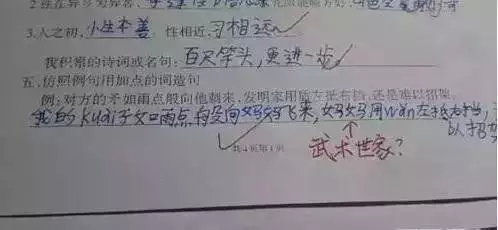 3.人之初,小生本善 性相近,习相远
我积累的诗词或名句:百尺竿头,更进一步。
五、仿照例句用加点的词造句
例:对方的矛如雨点般向他刺来,发明家用盾左抵右挡,还是难以招架。
我的kuai子如雨点般向妈妈飞来,妈妈用wǎn左抵右挡,
以招架
武术世家?
共4页第1页